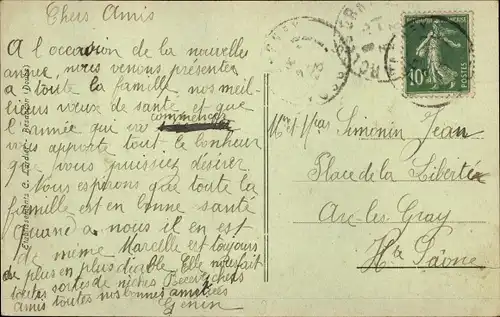 Chers Amis
A l'occasion de la nouvelle
année, nous venons présenter
a toute la famille nos meil-
leurs vœux de santé et que
l'année qui va commencer
vous apporte tout le bonheur
que vous puissiez désirer
Nous esperons que toute la
famille est en bonne santé
Quand a nous il en est
de même Marcelle est toujours
de plus en plus diable. Elle nous fait
toutes sortes de niches Recevez chers
amis toutes nos bonnes amitiés
Genin
Mr et Mme Simonin Jean
Place de la Liberté
Arc-les-Gray
Hte Saône
10c
POSTES
Etablissements C. Lardier - Besançon (Doubs)